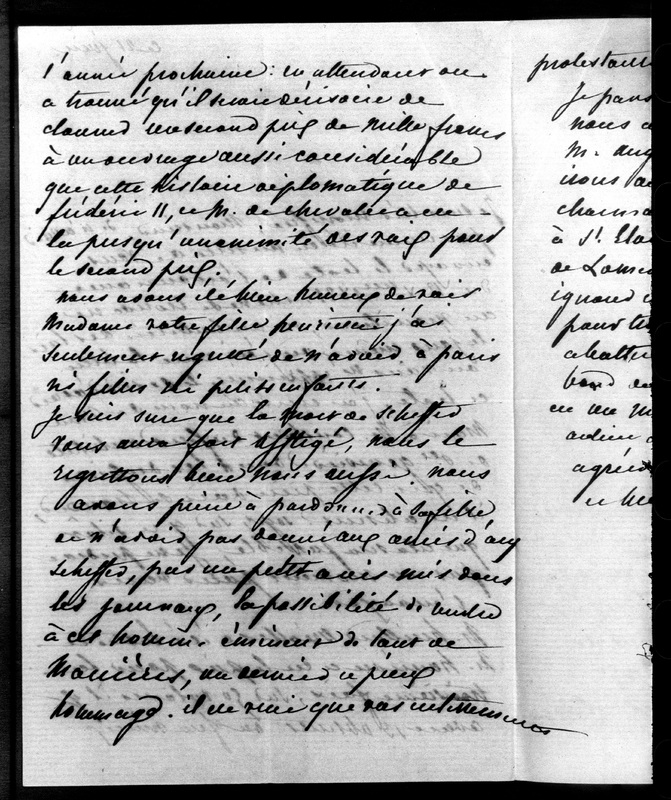 l'année prochaine: en attendant on
a trouvé qu'il serait dérisoire de
donner un second prix de mille francs
à un ouvrage aussi considérable
que cette histoire diplomatique de
frédéric II, et M. de cherrier a eu
la presqu'unanimité des voix pour
le second prix.
nous avons été bien heureux de voir
Madame votre fille j'ai
seulement regretté de n'avoir à paris
ni filles ni petits enfants.
Je suis sure que la mort de Scheffer
vous aura fort affligé, nous le
regrettons bien nous aussi. nous
avons peine à pardonner à sa fille
de n'avoir pas donné aux amis d'ary
Scheffer, par un petit avis mis dans
les journaux, la possibilité de rendre
à cet homme éminent de tant de
Manières, un dernier et pieux
hommage. il est vrai que vos
protestante
nous a
M.
à St.
de
pour
en un
adieu